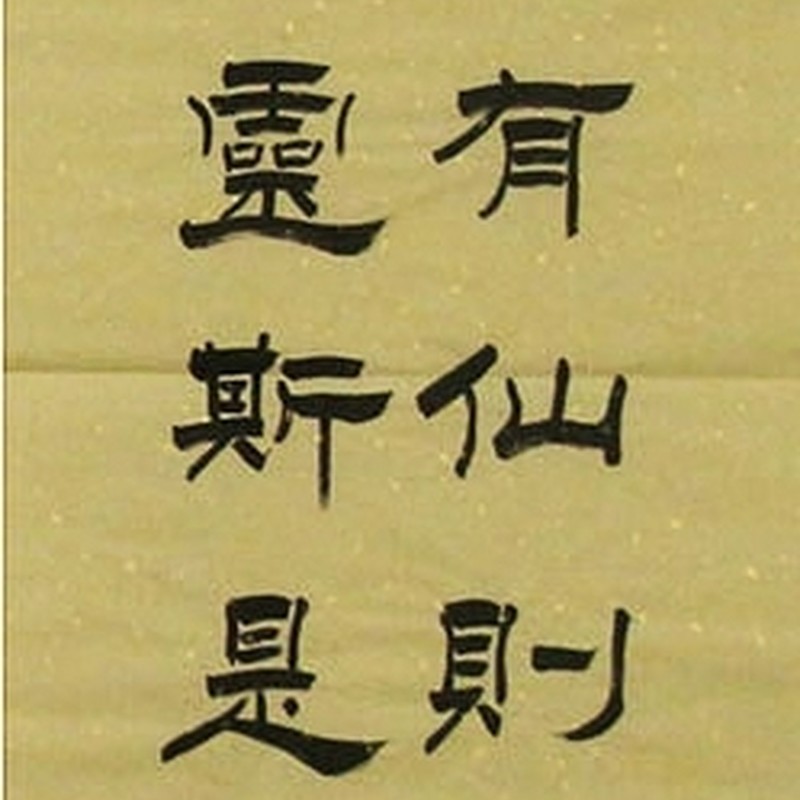 有仙則
靈斯是